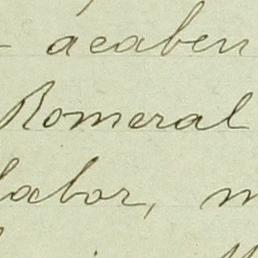 - acaben
Romeral
labor, m